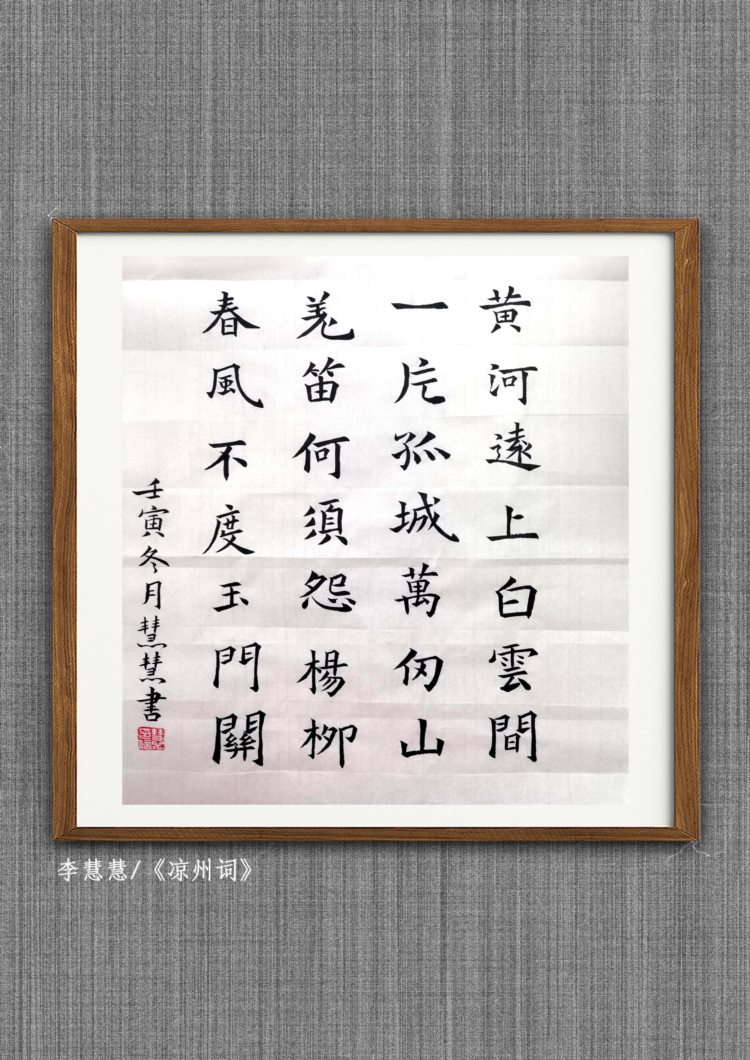 黄河遠上白雲間
一片孤城萬仞山
羌笛何須怨楊柳
春風不度玉門關
壬寅冬月慧慧書
李慧慧/《凉州词》